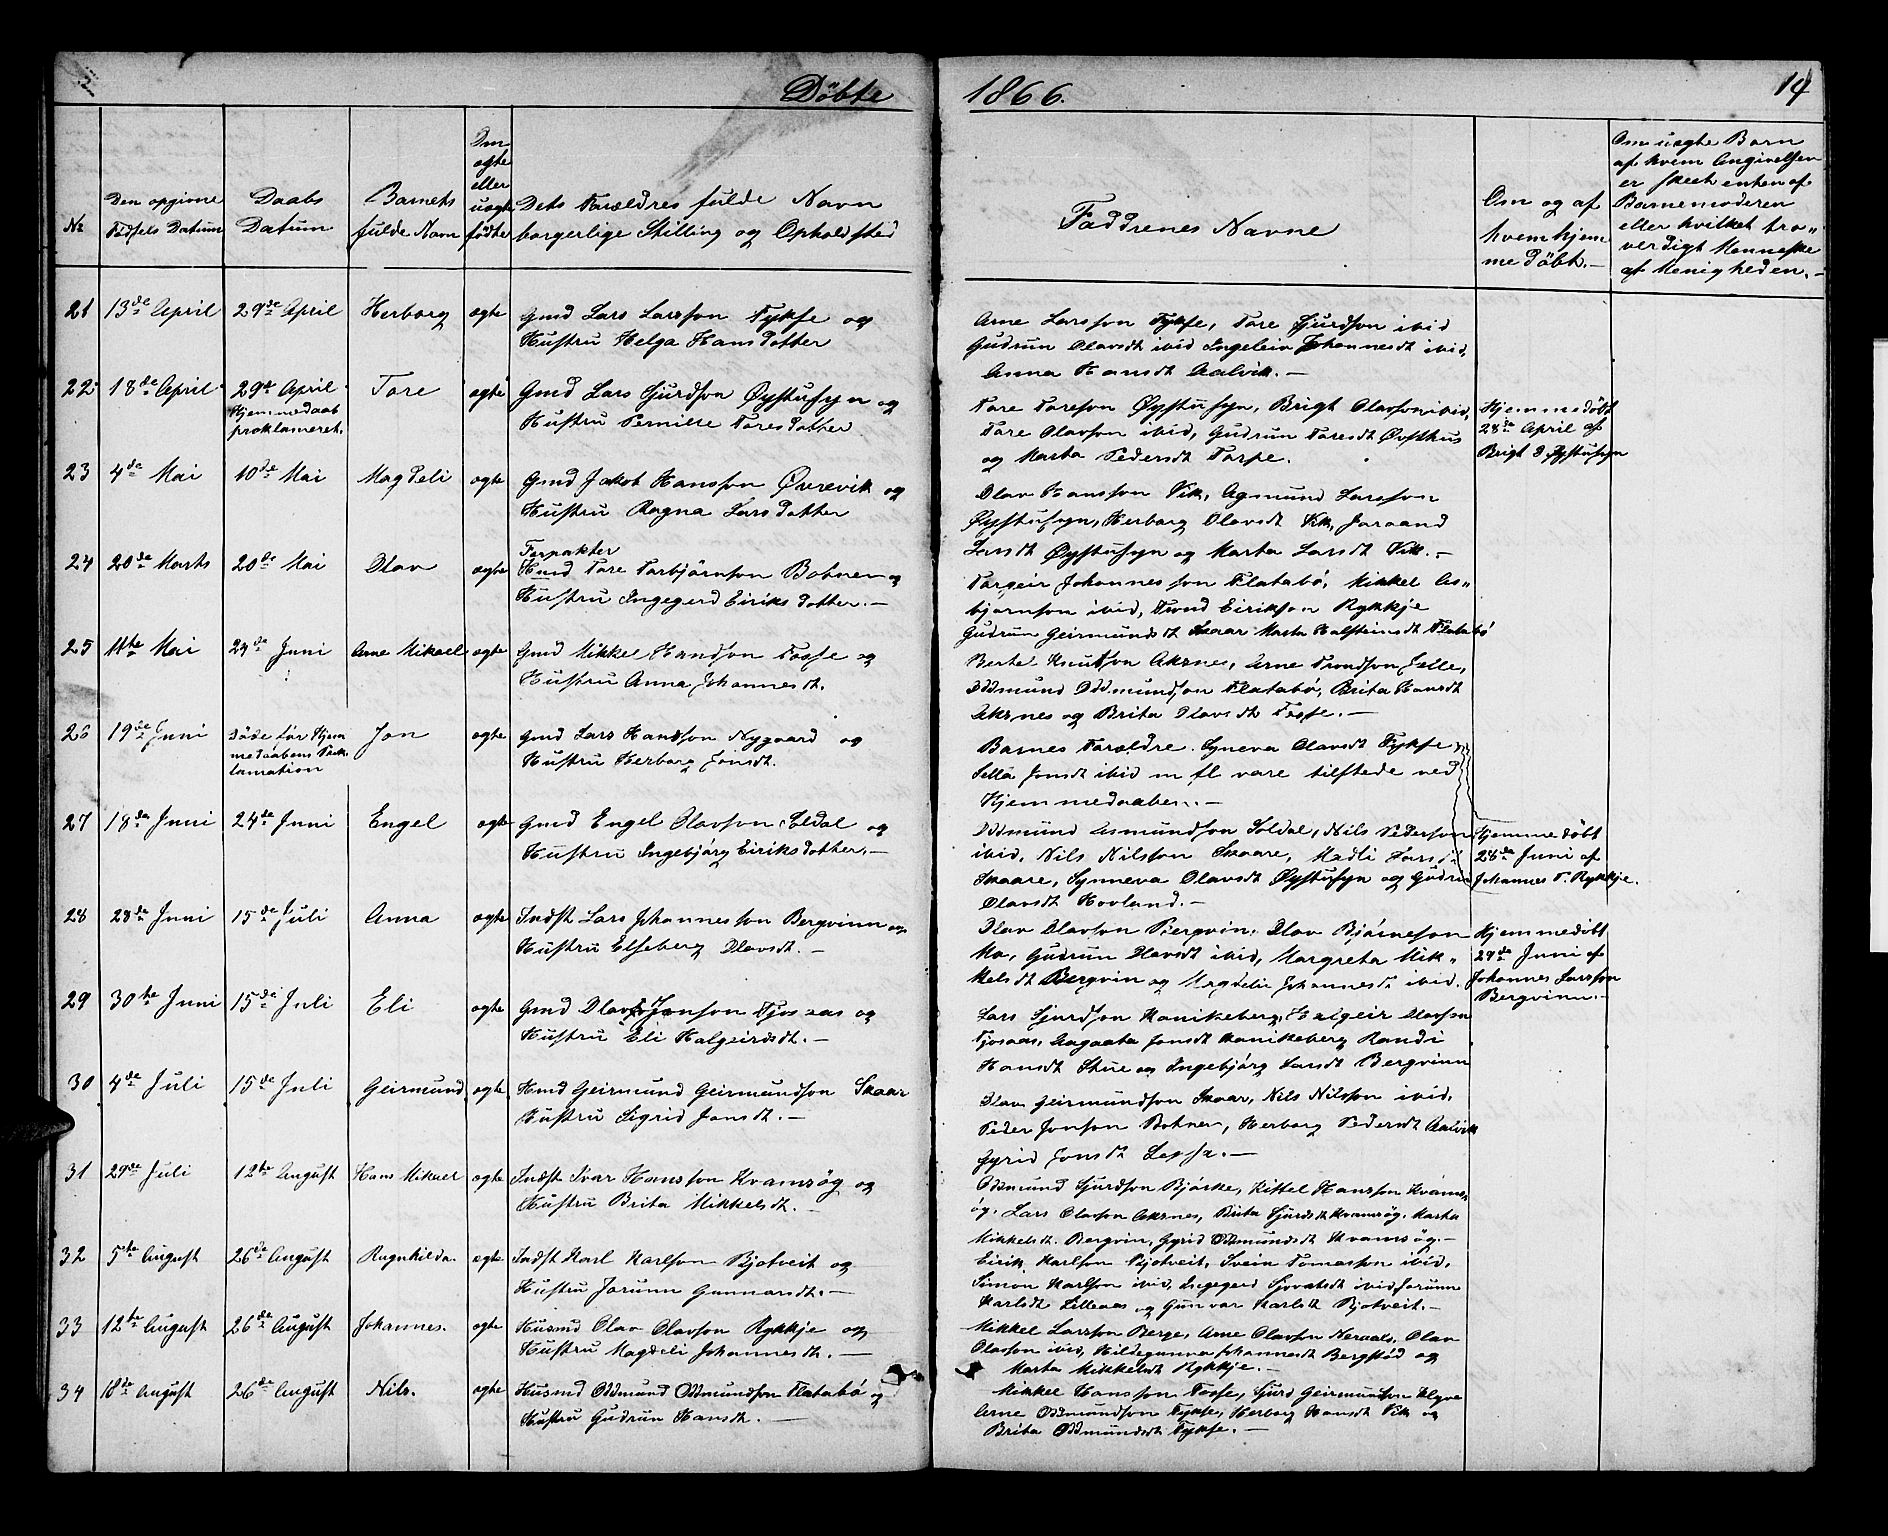 Döbte 1866. 14
№
Den opgivne
Födsels Datum
Daabs
Datum
Barnets
fulde Navn
Om
ægte
eller
uægte
fødte
Dets Forældres fulde Navn
borgerlige Stilling og Opholdsted
Faddrenes Navne
Om og af
hvem hjem
me döbt.-
Om uægte Barn
af hvem Angivelsen
er skeet enten af
Barnemoderen
eller hvilket tro-
verdigt Menneske
af Menigheden.-
21 13de April 29de April Herborg ægte Gmd Lars Larsson Fykse og
Hustru Helga Hansdotter
Arne Larsson Fykse, Tore Sjurdson ibid
Gudrun Olavsdt ibid Ingeleiv Johannesdt ibid,
Anna Hansdt Aalvik.-
22 18de April 29de April Tore ægte Gmd Lars Sjurdson Øystusyn og
Hjemmedaab
proklameret.
Hustru Pernille Toresdotter
Tore Toreson Øystusyn, Brigt Olavson ibid,
Tore Olavson ibid, Gudrun Toresdt Øvsthus
og Marta Pedersdt Torpe.
Hjemmedöbt
28de April af
Brigt O Øystusyn
23 4de Mai 10de Mai Magdeli ægte Gmd Jakob Hansson Øvrevik og
Hustru Ragna Larsdotter
Olav Hansson Vik, Agmund Larsson
Øystusyn, Herborg Olavsdt Vik, Joraand
Larsdt Øystusyn og Marta Larsdt Vik.-
24 20de Marts 20de Mai Olav ægte
Forpakter
Hmd Tore Torbjörnson Botnen og
Hustru Ingegerd Eiriksdotter.-
Torgeir Johannesson Flatabö, Mikkel As-
bjørnson ibid, Trond Eirikson Rykkje
Gudrun Geirmundsdt Skaar Marta Halsteinsdt Flatabö
25 11te Mai 24de Juni Arne Mikael ægte Gmd Mikkel Hansson Tosse og
Hustru Anna Johannesdt.
Berte Knutson Aksnes, Arne Trondson
Oddmund Oddmundson Flatabö, Brita Hansdt
Aksnes og Brita Olavsdt Tosse.-
26 19de Juni
Döde før Hjem
medaabens Prok
lamation
Jon ægte Gmd Lars Hansson Nygaard og
Hustru Herborg Jonsdt.
Barnes Forældre. Syneva Olavsdt Fykse,
Jonsdt ibid m fl vare tilstede ved
Hjemmedaaben.-
27 18de Juni 24de Juni Engel ægte Gmd Engel Olavson Soldal og
Hustru Ingebjörg Eiriksdotter.-
Oddmund Asmundson Soldal, Nils Pederson
ibid, Nils Nilsson Skaare, Madli
Skaare, Synneva Olavsdt Øystusyn og Gudrun
Olavsdt Hovland.-
Hjemmedöbt
Juni af
Johannes T. Rykkje.
28 28de Juni 15de Juli Anna ægte Indst Lars Johannesson Bergvinn og
Hustru Elseberg Olavsdt.-
Olav Olavson Bergvin, Olav Bjørneson
Mo, Gudrun Olavsdt ibid, Margreta Mik-
kelsdt Bergvin og Magdeli Johannesdt ibid.
Hjemmedöbt
29de Juni af
Johannes Larsson
Bergvinn.-
29 30te Juni 15de Juli Eli ægte Gmd Olav Jonson Fjosaas og
Hustru Eli Halgeirdsdt.-
Lars Sjurdson Kanikeberg, Halgeir Olavson
Fjosaas, Aagaata Jonsdt Kanikeberg Randi
Hansdt Stue og Ingebjörg Larsdt Bergvinn
30 4de Juli 15de Juli Geirmund ægte Hmd Geirmund Geirmundson Skaar
Hustru Sigrid Jonsdt.-
Olav Geirmundson Skaar, Nils Nilsson ibid,
Peder Jonson Botnen, Herborg Pedersdt Aalvik
Gyrid Jonsdt
31 29de Juli 12te August Hans Mikael ægte Indst Ivar Hansson Kvamsög og
Hustru Brita Mikkelsdt.-
Oddmund Sjurdson Bjørke, Kittel Hansson Kvams
ög, Lars Olavson Aksnes, Brita Sjurdsdt Kvamsög, Marta
Mikkelsdt. Bergvin, Gyrid Oddmundsdt Kvamsög.-
32 5te August 26de August Ragnhilda. ægte Indst Karl Karlson Bjotveit og
Hustru Jorunn Gunnarsdt.-
Eirik Karlson Bjotveit, Svein Tomasson ibid,
Simon Karlson ibid, Ingegerd Sjovatsdt ibid Jorunn
Karlsdt Lilleaas og Gunvor Karlsdt Bjotveit.-
33 12te August 26de August Johannes. ægte Husmd Olav Olavson Rykkje og
Hustru Magdeli Johannesdt.-
Mikkel Larsson Berge, Arne Olavson Neraas, Olav
Olavson ibid, Hildegunna Johannesdt Bergstöd og
Marta Mikkelsdt Rykkje.-
34 18de August 26de August Nils. ægte Husmd Oddmund Oddmundson Flatabö og
Hustru Gudrun Hansdt.-
Mikkel Hansson Tosse, Sjurd Geirmundson Klyve
Arne Oddmundson Fykse, Herborg Hansdt Vik og
Brita Oddmundsdt Fykse.-